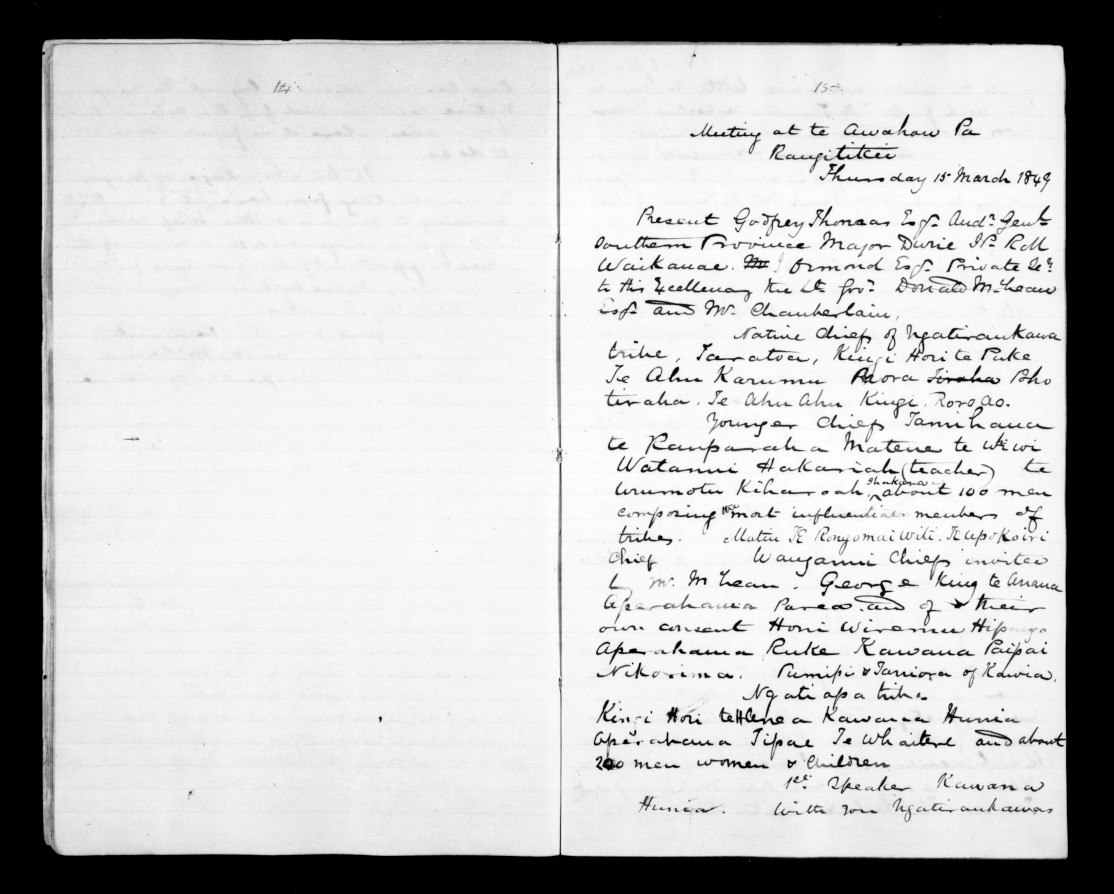 14.
15
Meeting at te Awahou Pa
Rangitikei
Thursday 15 March 1849
Present Godfrey Thomas Esqr. Audr. Genl.
Southern Province Major Durie J.P. R.M
Waikanae. J Ormond Esqr. Private Secy.
to His Excellency the Lt. Govr. Donald McLean
Esqr. and Mr. Chamberlain.
Native Chiefs of Ngatiraukawa
tribe, Taratoa, Kingi Hori te Puke
Te Ahu Karamu Paora Tiraha Pho
tiraha. Te Ahu Ahu Kingi. Roroao.
Younger Chiefs Tamihana
te Rauparaha Matene te Wiwi
Watanui Hakariah (teacher) te
Urumotu Kiharoah, about 100 men
composing the most influential members of
tribes. Matiu Te Rongomai Witi. Te Upokoiri
Chief Wanganui Chiefs invited
by Mr. McLean. George King te Anaua
Aperahama Parea. and of their
own consent Honi Wiremu Hipango
Aperahama Ruke Kawana Paipai
Nikorima. Pumipi & Taniora of Kawia.
Ngatiapa tribe
Kingi Hori te Hanea Kawana Hunia
Aperahama Tipae Te Whaitere and about
200 men women & Children
1st. Speaker Kawana
Hunia. With you Ngatiraukawas